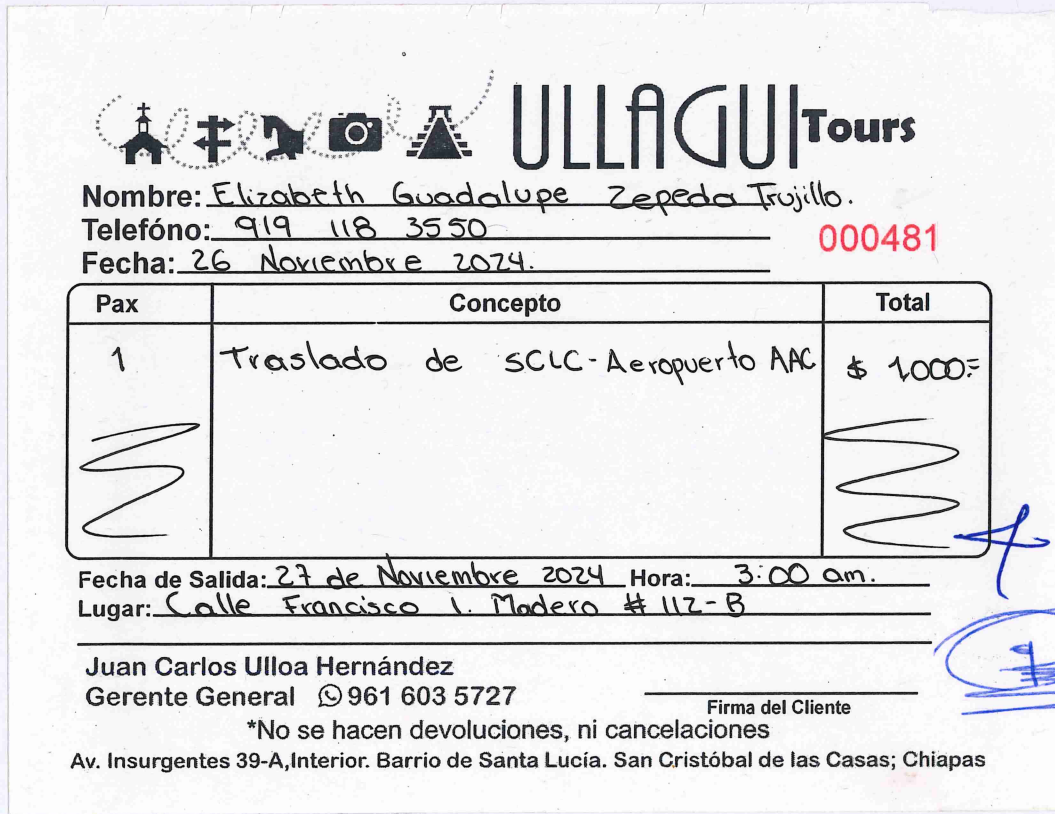 ULLAGUI Tours
Nombre: Elizabeth Guadalupe Zepeda Trujillo.
Telefóno: 919 118 3550
000481
Fecha: 26 Noviembre 2024.
Pax Concepto Total
1 Traslado de SCLC-Aeropuerto AAC $ 1,000=
Fecha de Salida: 27 de Noviembre 2024 Hora: 3:00 am.
Lugar: Calle Francisco I. Madero # 112-B
Juan Carlos Ulloa Hernández
Gerente General 961 603 5727
Firma del Cliente
*No se hacen devoluciones, ni cancelaciones
Av. Insurgentes 39-A,Interior. Barrio de Santa Lucía. San Cristóbal de las Casas; Chiapas